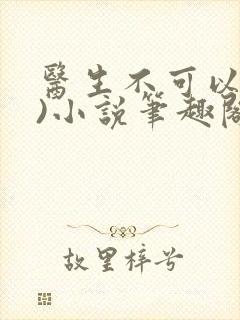 醫生不可以
)小説筆趣閣
故里梓兮